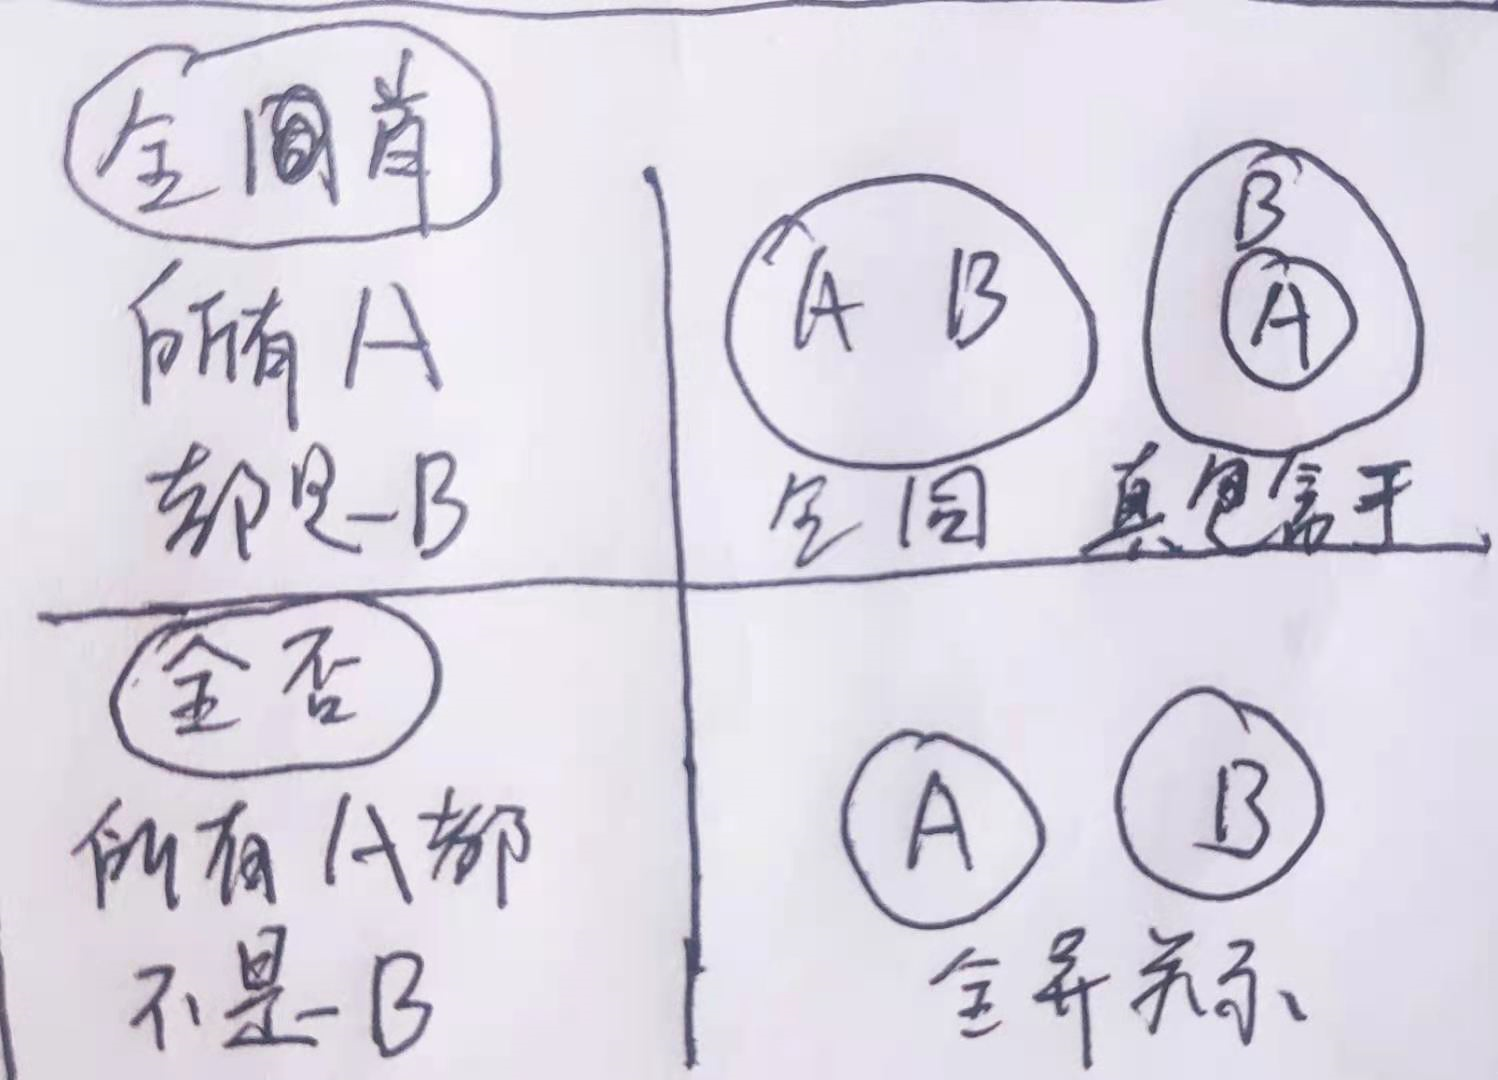 全肯
所有 A
都是 B
A B
B
A
全同
真包含于
全否
所有 A 都
不是 B
A B
全异关系